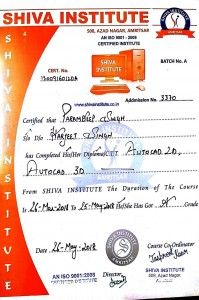 SHIVA INSTITUTE
500, AZAD NAGAR, AMRITSAR
AN ISO 9001-2008
CERTIFIED INSTITUTE
BATCH No. A
CERT. No.
www.shivainstitute.co.in
Addmission No. 3330
SHIVA INSTITUTE
Certified that Paramdeep Singh
S/o D/o Harjeet Singh
has Completed His/Her Diploma CTT AutoCAD 2D,
AutoCAD 3D
From SHIVA INSTITUTE The Duration of The Course
Is 26-Nov-2017 To 25-May-2018 He/She Has Got Grade.
Date 26-May-2018
Course Co-Ordinator
AN ISO 9001:2008
Director
SHIVA INSTITUTE
500, Azad Nagar,